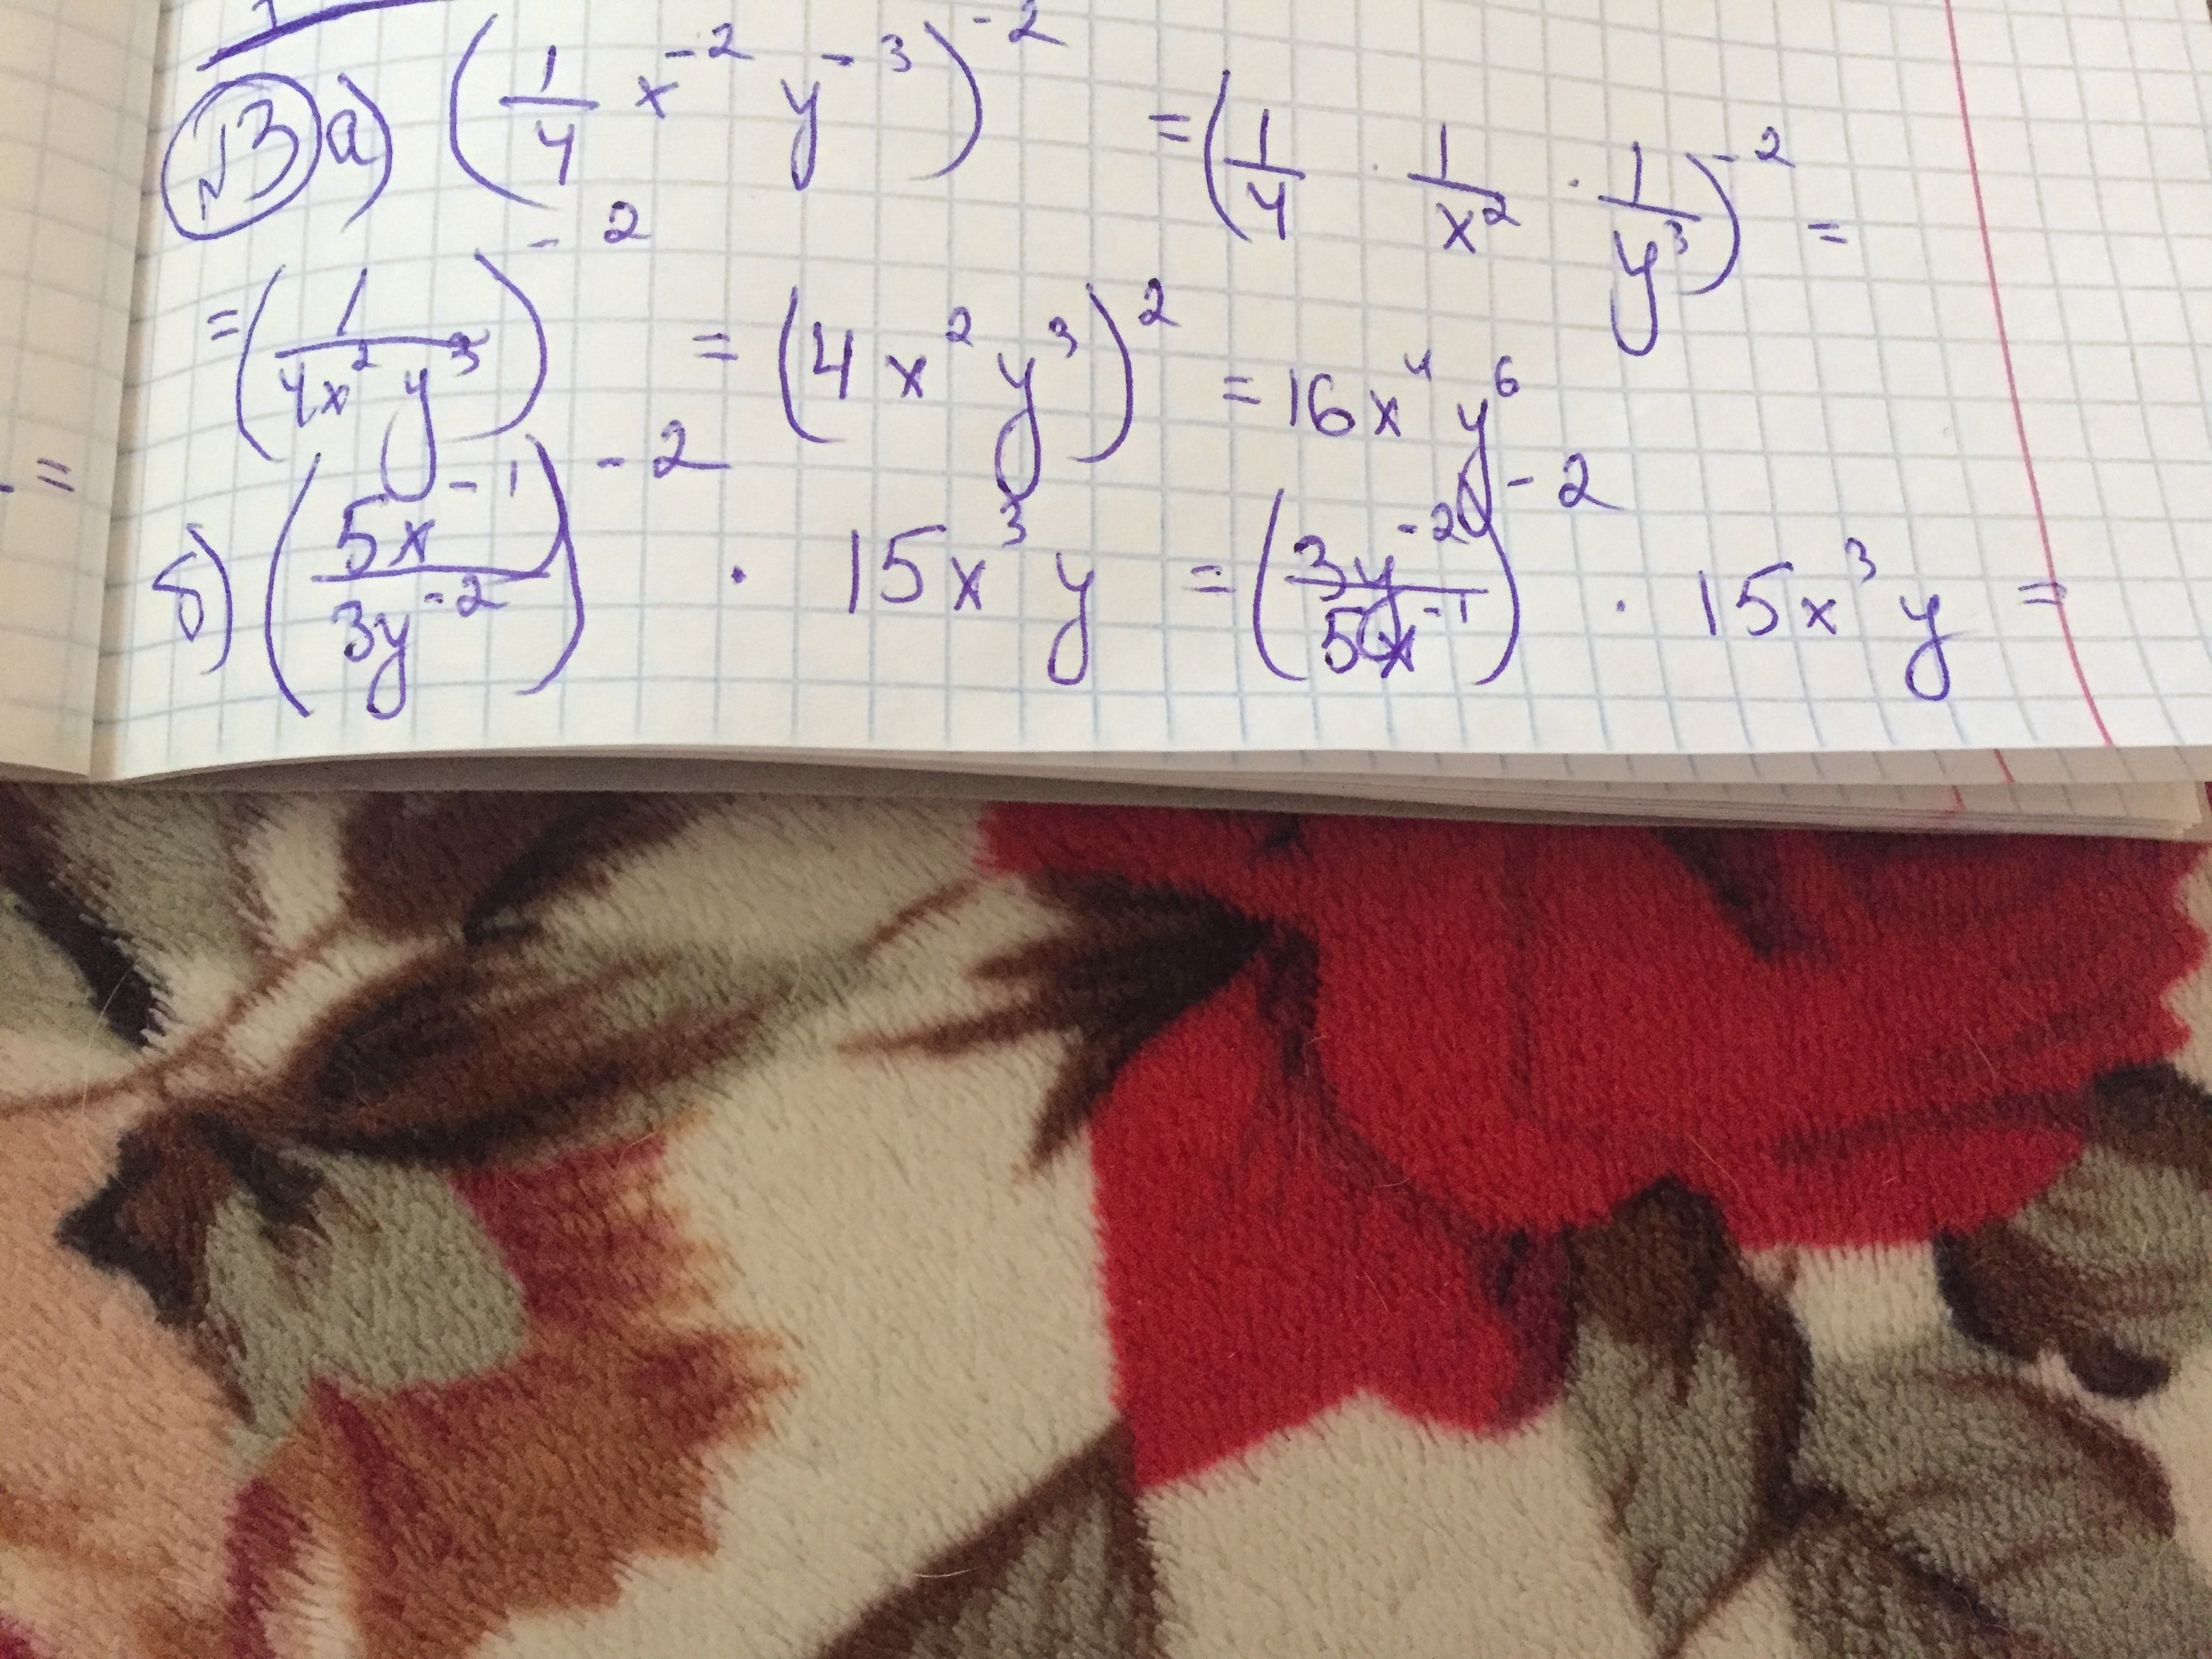 №3 а) (1/4 x^-2 y^-3)^-2 = (1/4 · 1/x^2 · 1/y^3)^-2 =
= (1/4x^2 y^3)^-2 = (4x^2 y^3)^2 = 16x^4 y^6
=
б) (5x^-1/3y^-2)^-2 · 15x^3 y = (3y^-2/5x^-1)^-2 · 15x^3 y =